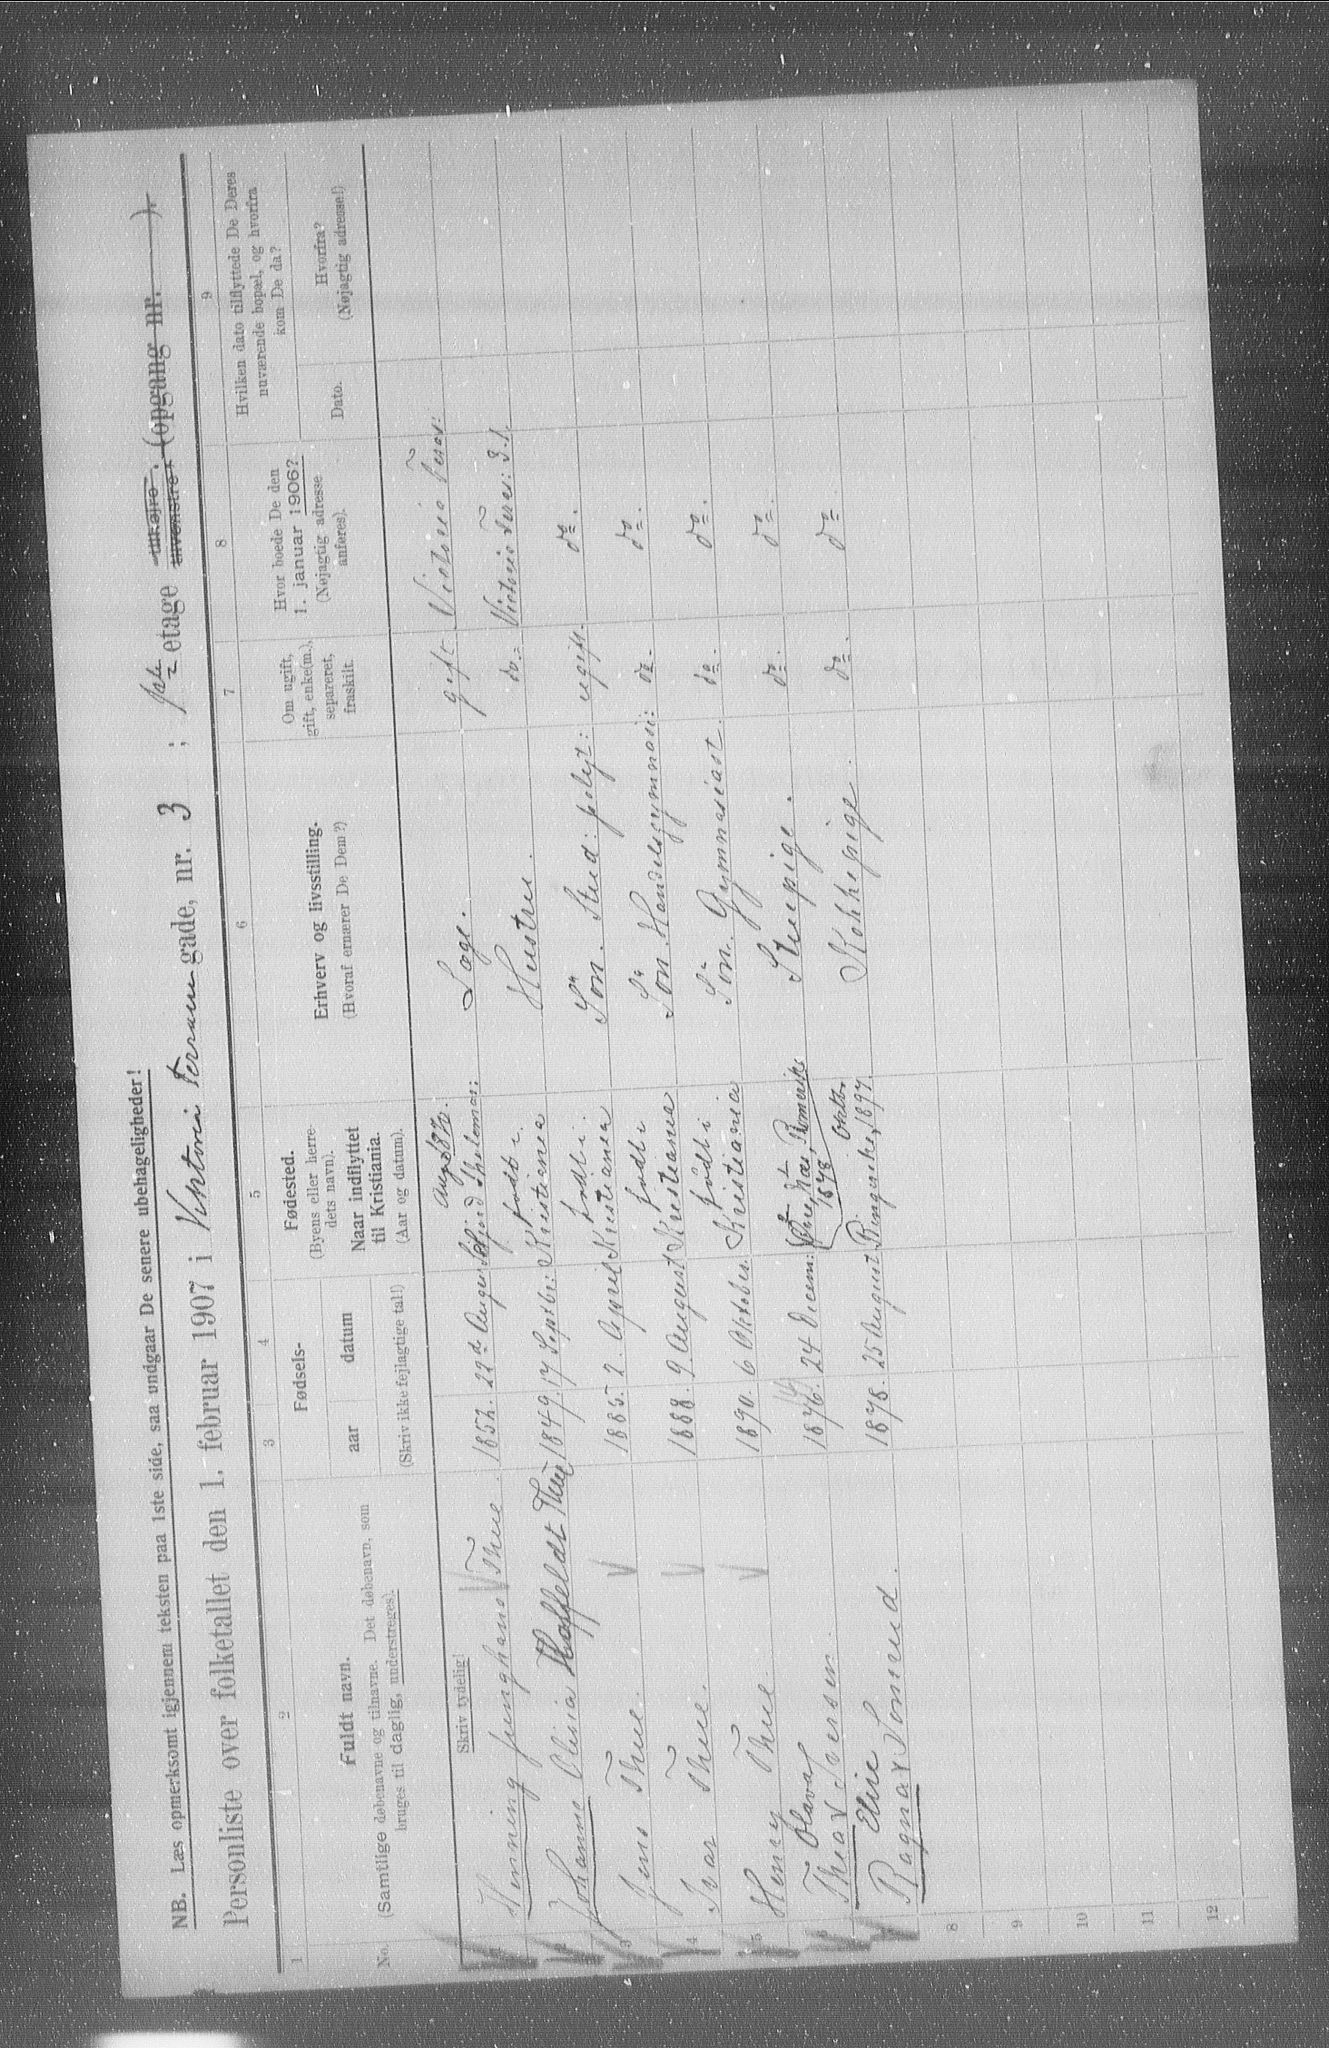 NB. Læs opmerksomt igjennem teksten paa 1ste side, saa undgaar De senere ubehageligheder!
Personliste over folketallet den 1. februar 1907 i Viktoria Terrasse gade, nr. 3 ; etage tilhøjre. tilvenstre. (opgang nr. ).
1 2 3 4 5 6 7 8 9
No. Fuldt navn. (Samtlige døbenavne og tilnavne. Det døbenavn, som bruges til daglig, understreges).
Fødsels- aar datum (Skriv ikke fejlagtige tal!)
Fødested. (Byens eller herredets navn). Naar indflyttet til Kristiania. (Aar og datum).
Erhverv og livsstilling. (Hvoraf ernærer De Dem?)
Om ugift, gift, enke(m.), separeret, fraskilt.
Hvor boede De den 1. januar 1906? (Nøjagtig adresse anføres).
Hvilken dato tilflyttede De Deres nuværende bopæl, og hvorfra kom De da?
Dato. Hvorfra? (Nøjagtig adresse!)
Skriv tydelig!
Henning Junghans Thue. 1852. 22d August Thelemar: Læge. gift. Victoria Teras:
Johanne Olivia Hoffeldt Thue 1849. 17 Septbr: født i Kristiania Hustru. do. Victoria Teras: 3.
3 Jens Thue. 1885. 2. April født i Kristiania Søn. Stud: polyt: ugift. do.
4 Ivar Thue. 1888. 9 August født i Kristiania Søn. Handelsgymnasi: do. do.
5 Henry Thue. 1890. 6 Oktober. født i Kristiania Søn. Gymnasiast. do. do.
Thea Olava Iversen. 1876. 24 Decem: Næs, Romerike 1898 Stuepige. do. do.
Ragna Elise Sonerud. 1878. 25 August Ringerike, 1897. Kokkepige. do. do.
8
9
10
11
12